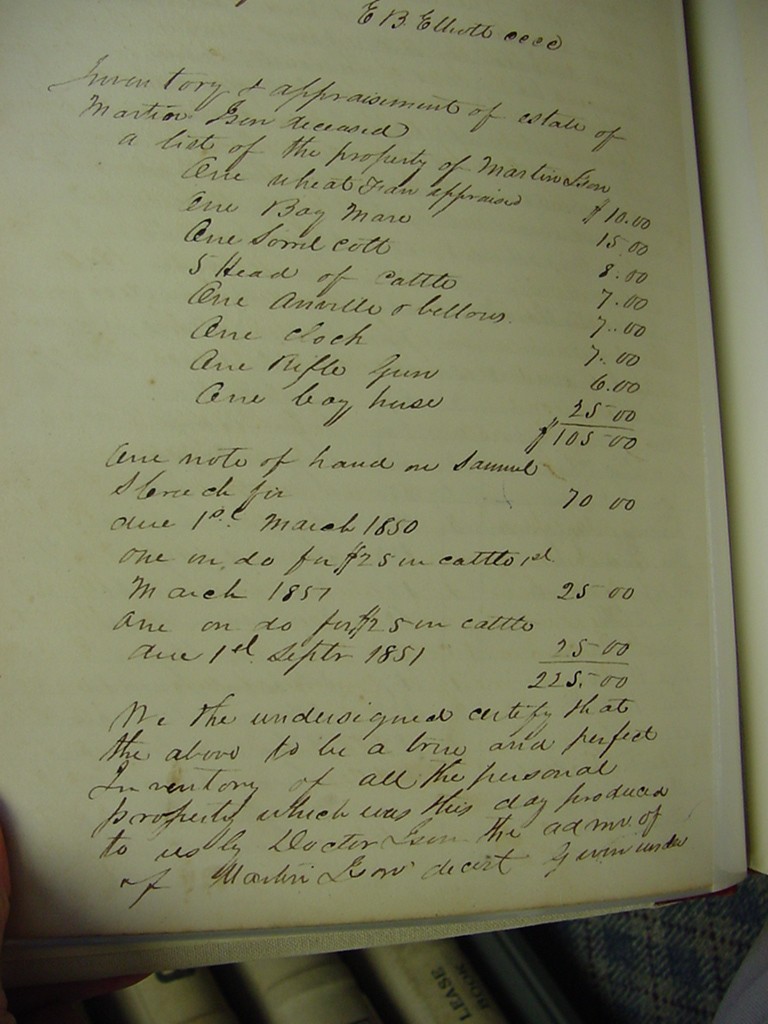 E B Elliott cccc
Inventory & appraisement of estate of
Martin Ison deceased
a list of the property of Martin Ison
One wheat Fan appraised $10.00
One Bay Mare 15.00
One Sorrel colt 8.00
5 Head of cattle 7.00
One Anville & bellows 7.00
One clock 7.00
One Rifle Gun 6.00
One bay horse 25 00
$105 00
One note of hand on Samuel
for 70 00
due 1st March 1850
one on do for $25 in cattle 1st
March 1851 25 00
One on do for $25 in cattle
due 1st Septr 1851 25.00
225.00
We the undersigned certify that
the above to be a true and perfect
Inventory of all the personal
property which was this day produced
to us by Doctor Ison the admr of
of Martin Ison decest Given under
LEASE
BOOK